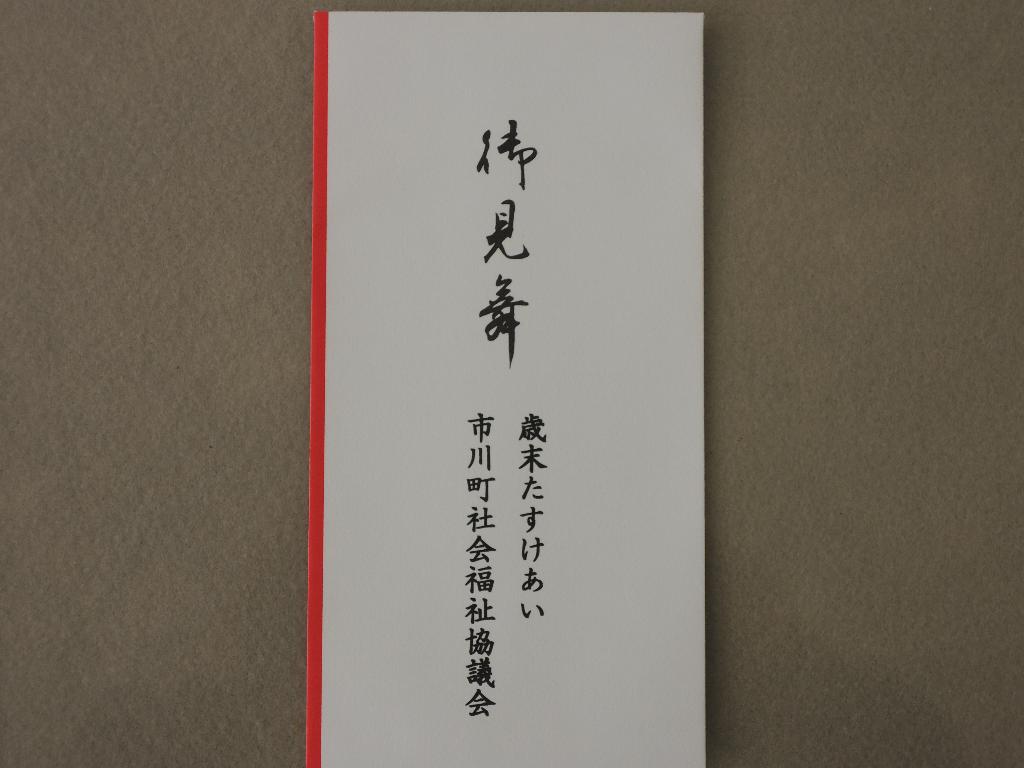 御見舞
歳末たすけあい
市川町社会福祉協議会